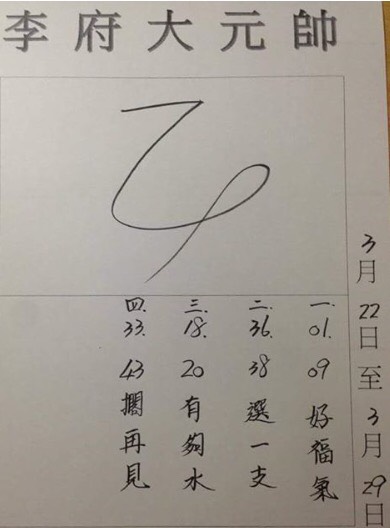 李府大元帥
3月22日至3月29日
一.01.09好福氣
二.36.38選一支
三.18.20有夠水
四.33.43擱再見